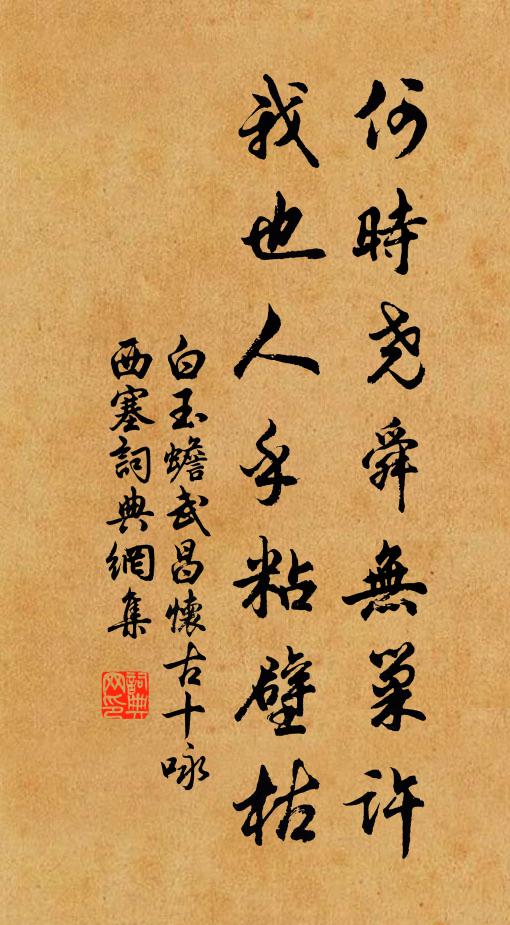 何時尧舜無巢許
我也人乎粘壁枯
白玉蟾武昌懷古十咏
西塞詞典網集
詞典網印